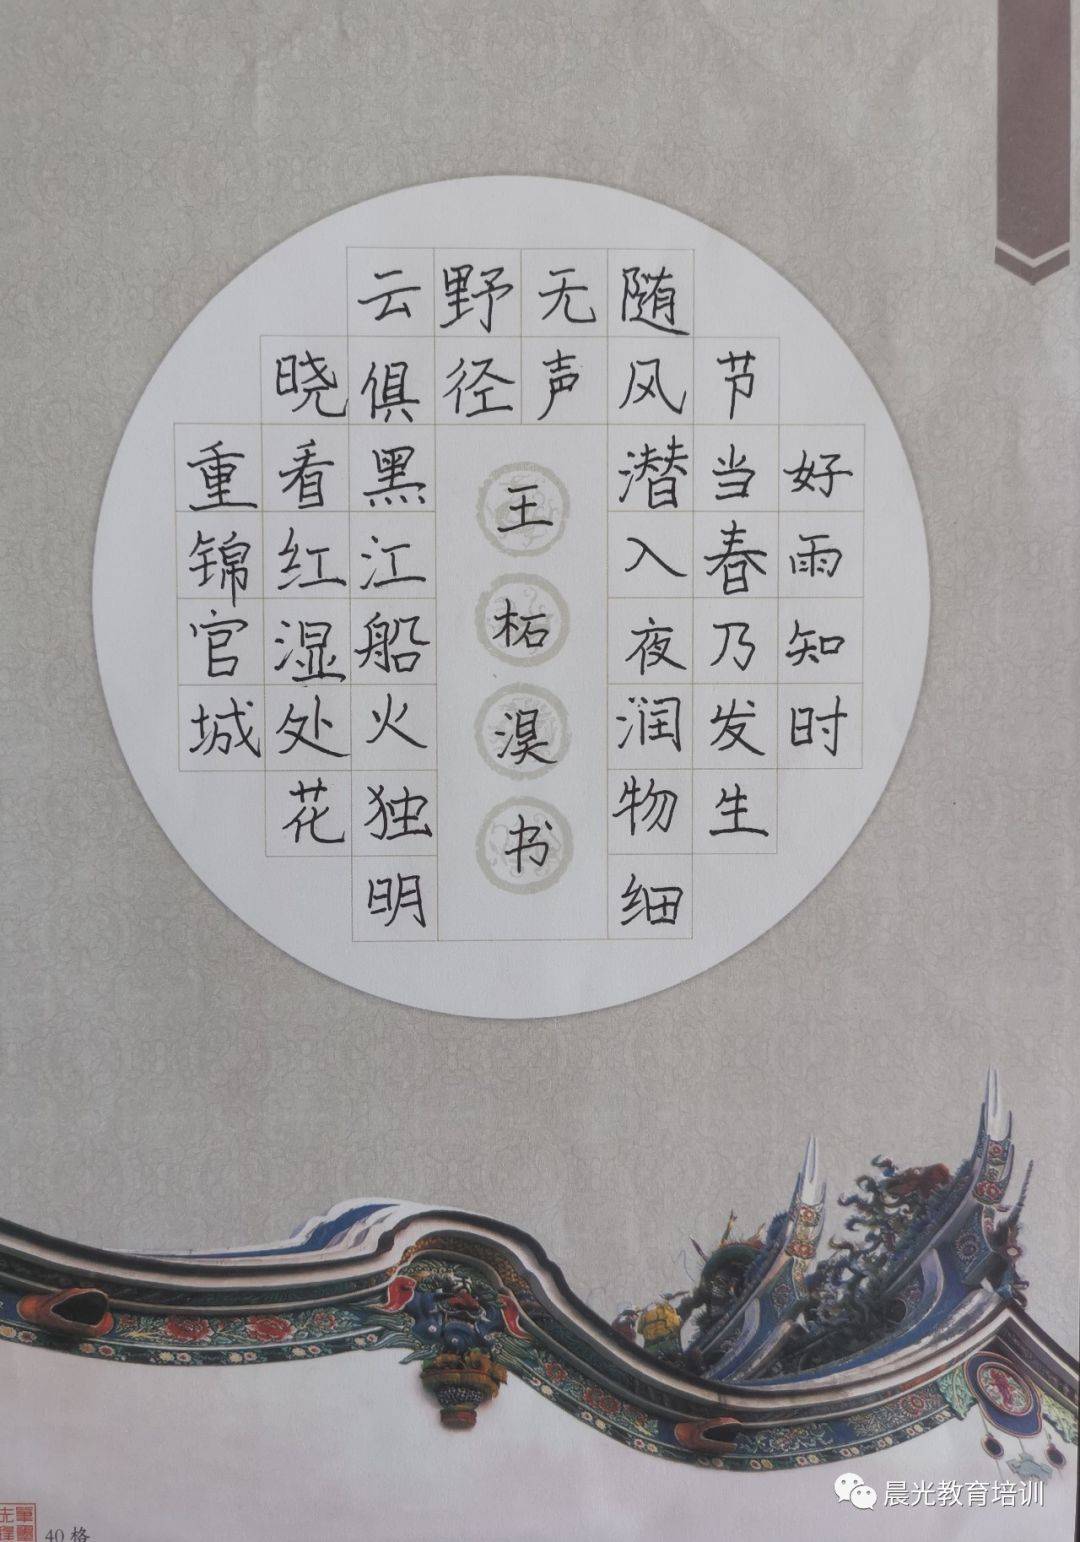 好雨知时
节当春乃发生
随风潜入夜润物细
无声
野径
云俱黑江船火独明
晓看红湿处花
重锦官城
王柘淏书
40格
晨光教育培训